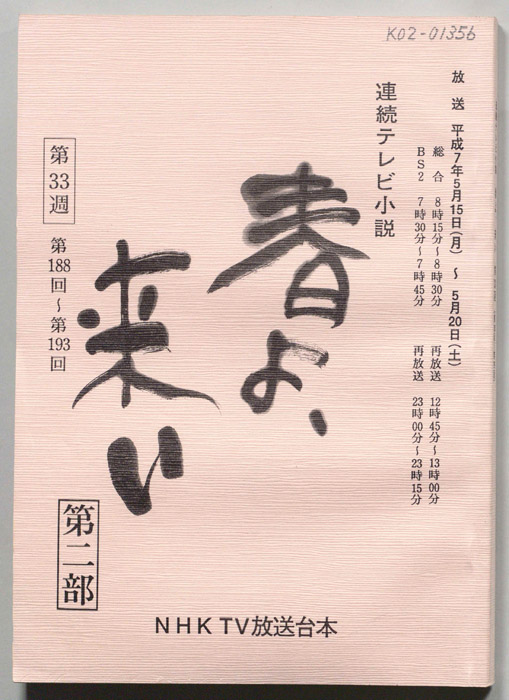 K02-01356
放送 平成7年5月15日(月)～5月20日(土)
総合 8時15分～8時30分 再放送 12時45分～13時00分
BS2 7時30分～7時45分 再放送 23時00分～23時15分
連続テレビ小説
春よ、
来い
第33週
第188回～第193回
第二部
NHK TV放送台本